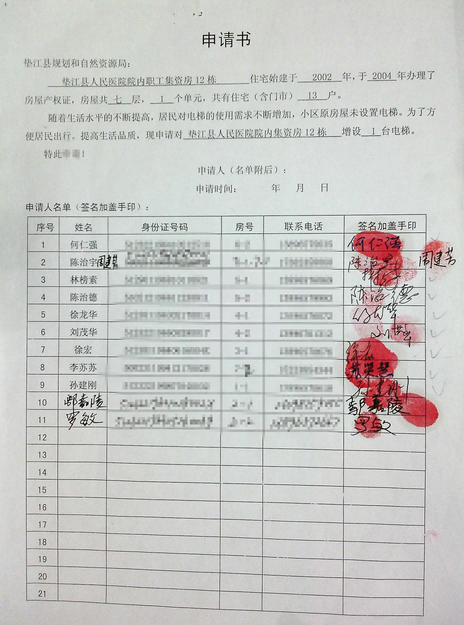 申请书
垫江县规划和自然资源局:
垫江县人民医院院内职工集资房12栋 住宅始建于 2002 年, 于 2004 年办理了
房屋产权证, 房屋共 七 层, 1 个单元, 共有住宅 (含门市) 13 户。
随着生活水平的不断提高, 居民对电梯的使用需求不断增加, 小区原房屋未设置电梯。为了方
便居民出行, 提高生活品质, 现申请对 垫江县人民医院院内集资房12栋 增设 1 台电梯。
特此
申请人 (名单附后):
申请时间: 年 月 日
申请人名单 (签名加盖手印):
序号 姓名 身份证号码 房号 联系电话 签名加盖手印
1 何仁强 何仁强
2 陈治宇 周建芳 陈治宇 周建芳
3 林榜素
4 陈治德 陈治德
5 徐龙华
6 刘茂华
7 徐宏 徐宏
8 李苏苏
9 孙建刚
10 鄢嘉陵 鄢嘉陵
11 罗敏 罗敏
12
13
14
15
16
17
18
19
20
21